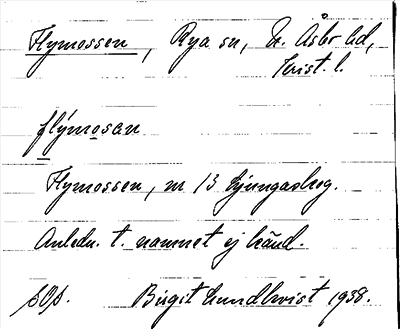 Flymossen, Rya sn, N. Åsbo hd,
Krist. l.
flýmosan
Flymossen, nr 13 Ljungaskog.
Anledn. t. namnet ej känd.
Birgit Lundkvist 1938.